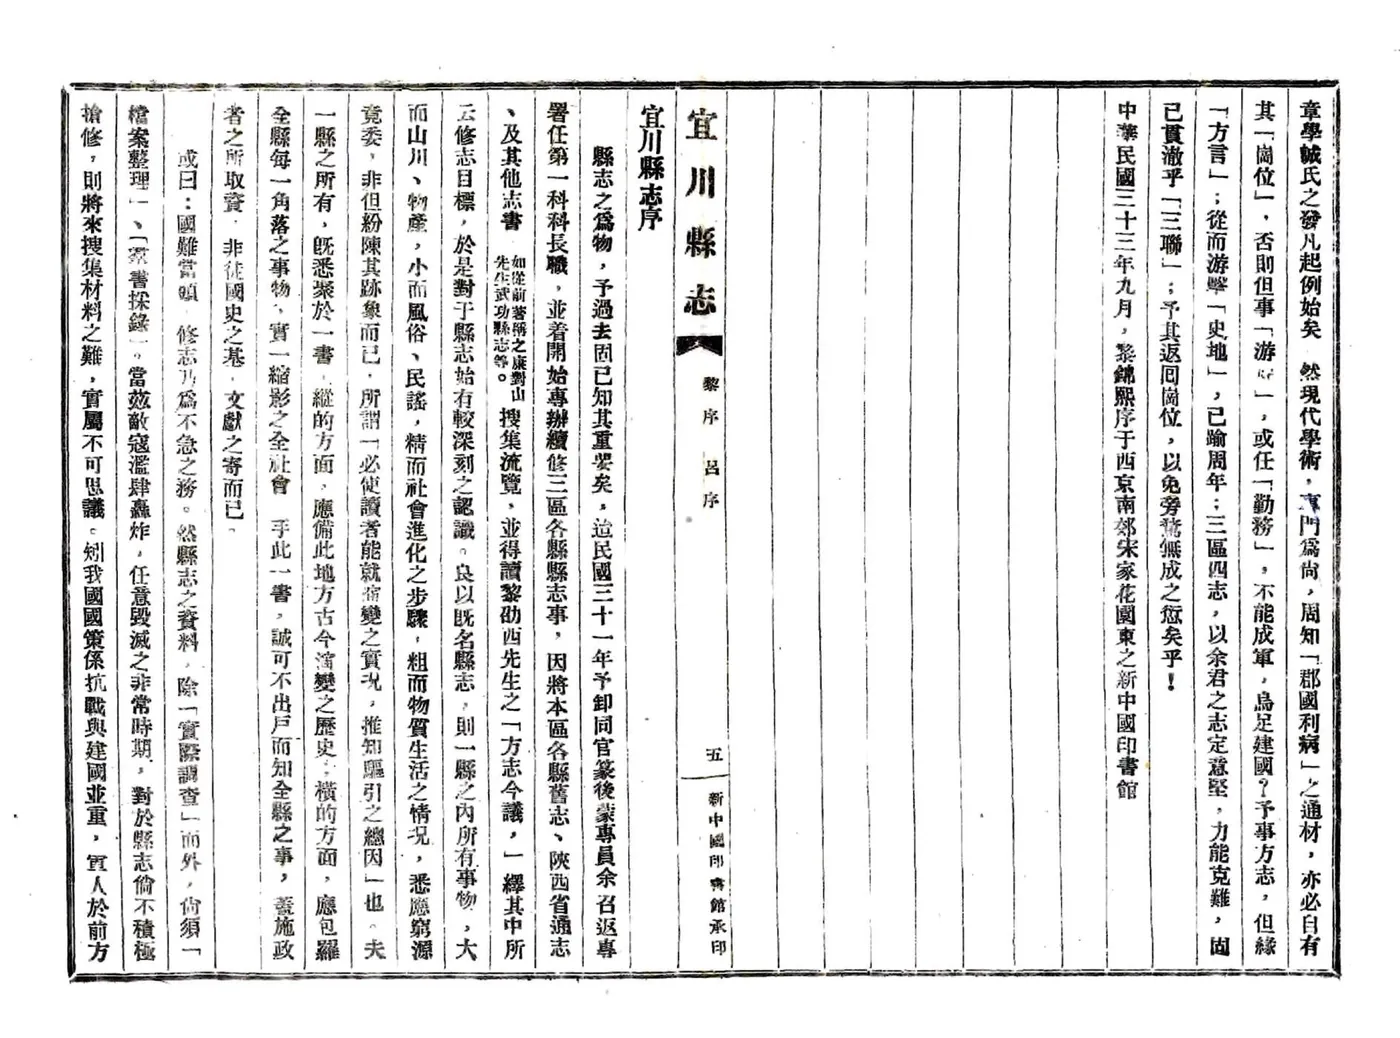 章學誠氏之發凡起例始矣　然現代學術，專門爲尚，周知「郡國利病」之通材，亦必自有
其「崗位」，否則但事「游　」，或任「勤務」，不能成軍，烏足建國？予事方志，但緣
「方言」；從而游擊「史地」，已踰周年；三區四志，以余君之志定意堅，力能克難，固
已貫澈乎「三聯」；予其返囘崗位，以免旁騖無成之愆矣乎！
中華民國三十三年九月，黎錦熙序于西京南郊宋家花園東之新中國印書館
宜川縣志
黎序　呂序
五
新中國印書館承印
宜川縣志序
縣志之爲物，予過去固已知其重要矣，迨民國三十一年予卸同官篆後蒙專員余召返專
署任第一科科長職，並着開始專辦續修三區各縣縣志事，因將本區各縣舊志、陝西省通志
、及其他志書　如從前著稱之康對山
先生武功縣志等。　搜集流覽，並得讀黎劭西先生之「方志今議，」繹其中所
云修志目標，於是對于縣志始有較深刻之認識。良以既名縣志，則一縣之內所有事物，大
而山川、物產，小而風俗、民謠，精而社會進化之步驟，粗而物質生活之情况，悉應窮源
竟委，非但紛陳其跡象而已，所謂「必使讀者能就演變之實况，推知驅引之總因」也。夫
一縣之所有，既悉聚於一書，縱的方面，應備此地方古今演變之歷史；橫的方面，應包羅
全縣每一角落之事物，實一縮影之全社會　手此一書，誠可不出戶而知全縣之事，爲施政
者之所取資，非徒國史之基，文獻之寄而已。
或曰：國難當頭，修志乃爲不急之務。然縣志之資料，除「實際調查」而外，尙須「
檔案整理」、「羣書採錄」。當茲敵寇濫肆轟炸，任意毀滅之非常時期，對於縣志倘不積極
搶修，則將來搜集材料之難，實屬不可思議。矧我國國策係抗戰與建國並重，軍人於前方